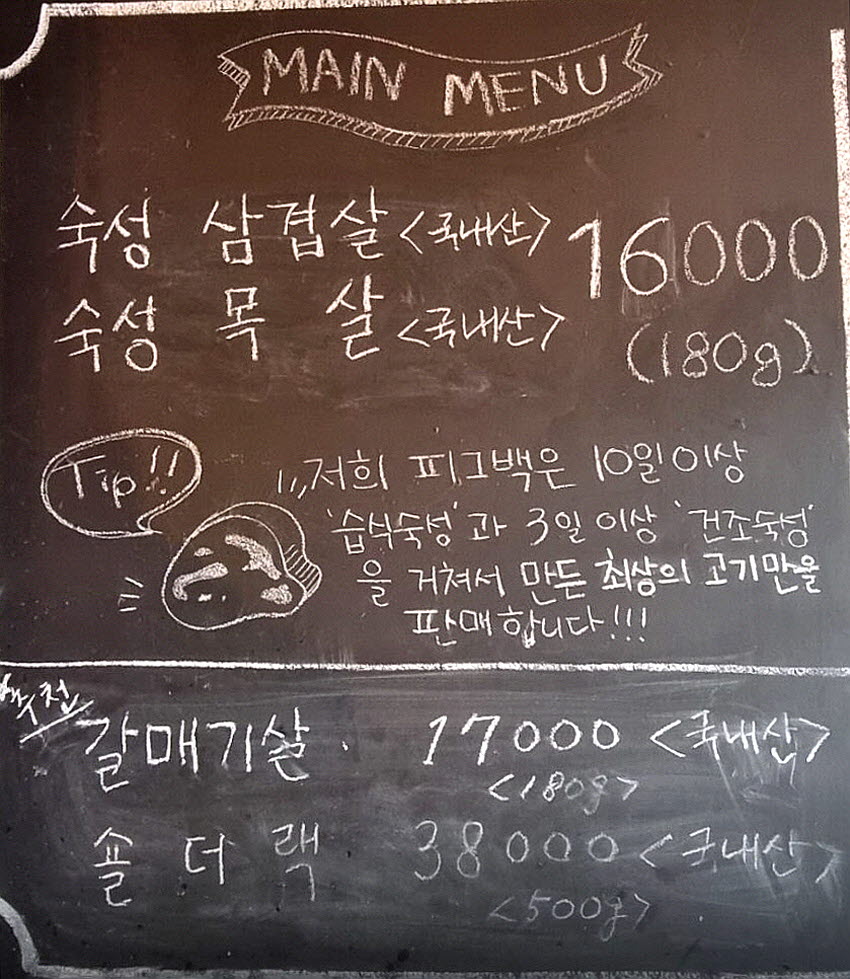 MAIN MENU
숙성 삼겹살 <국내산> 16000
숙성 목 살 <국내산> (180g)
Tip!!
저희 피그백은 10일이상
'습식숙성'과 3일 이상 '건조숙성'
을 거쳐서 만든 최상의 고기만을
판매합니다!!!
추천
갈매기살 17000 <국내산>
<180g>
숄더랙 38000 <국내산>
<500g>